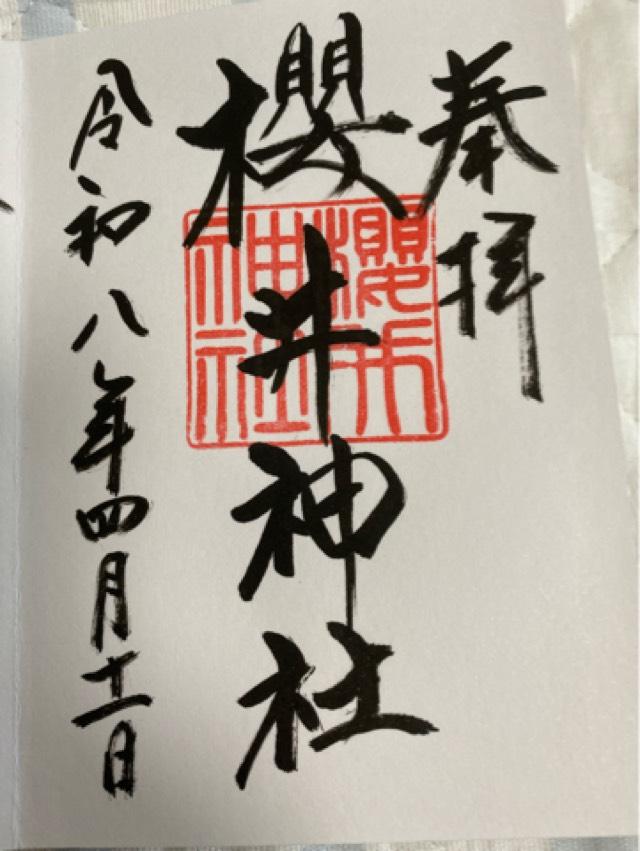 奉拝
櫻井神社
櫻井神社
令和八年四月十一日